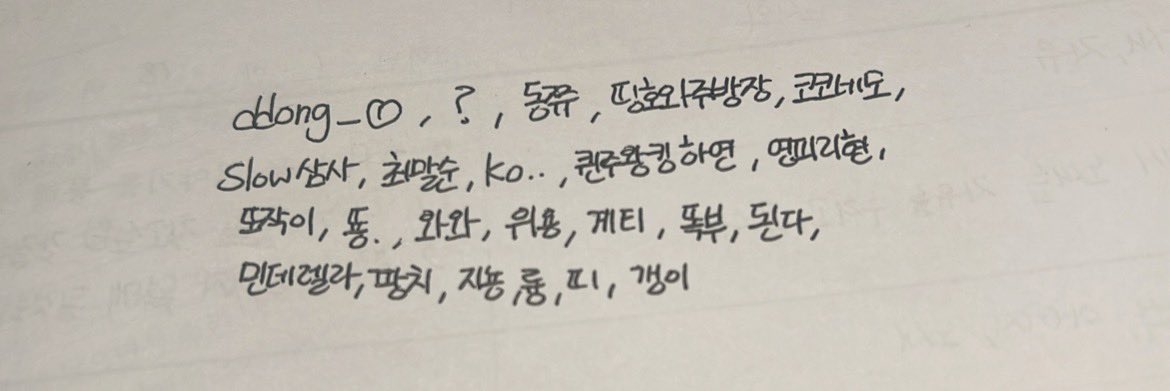 ddong_①, ?, 동쮸, 띵호와주방장, 코코네도,
slow삼사, 최말순, ko.., 퀸주왕킹하연, 연피리현,
또작이, 뚕., 와와, 위용, 게티, 똑부, 된다,
민데렐라, 땅치, 지뇽, 륭, 띠, 갱이